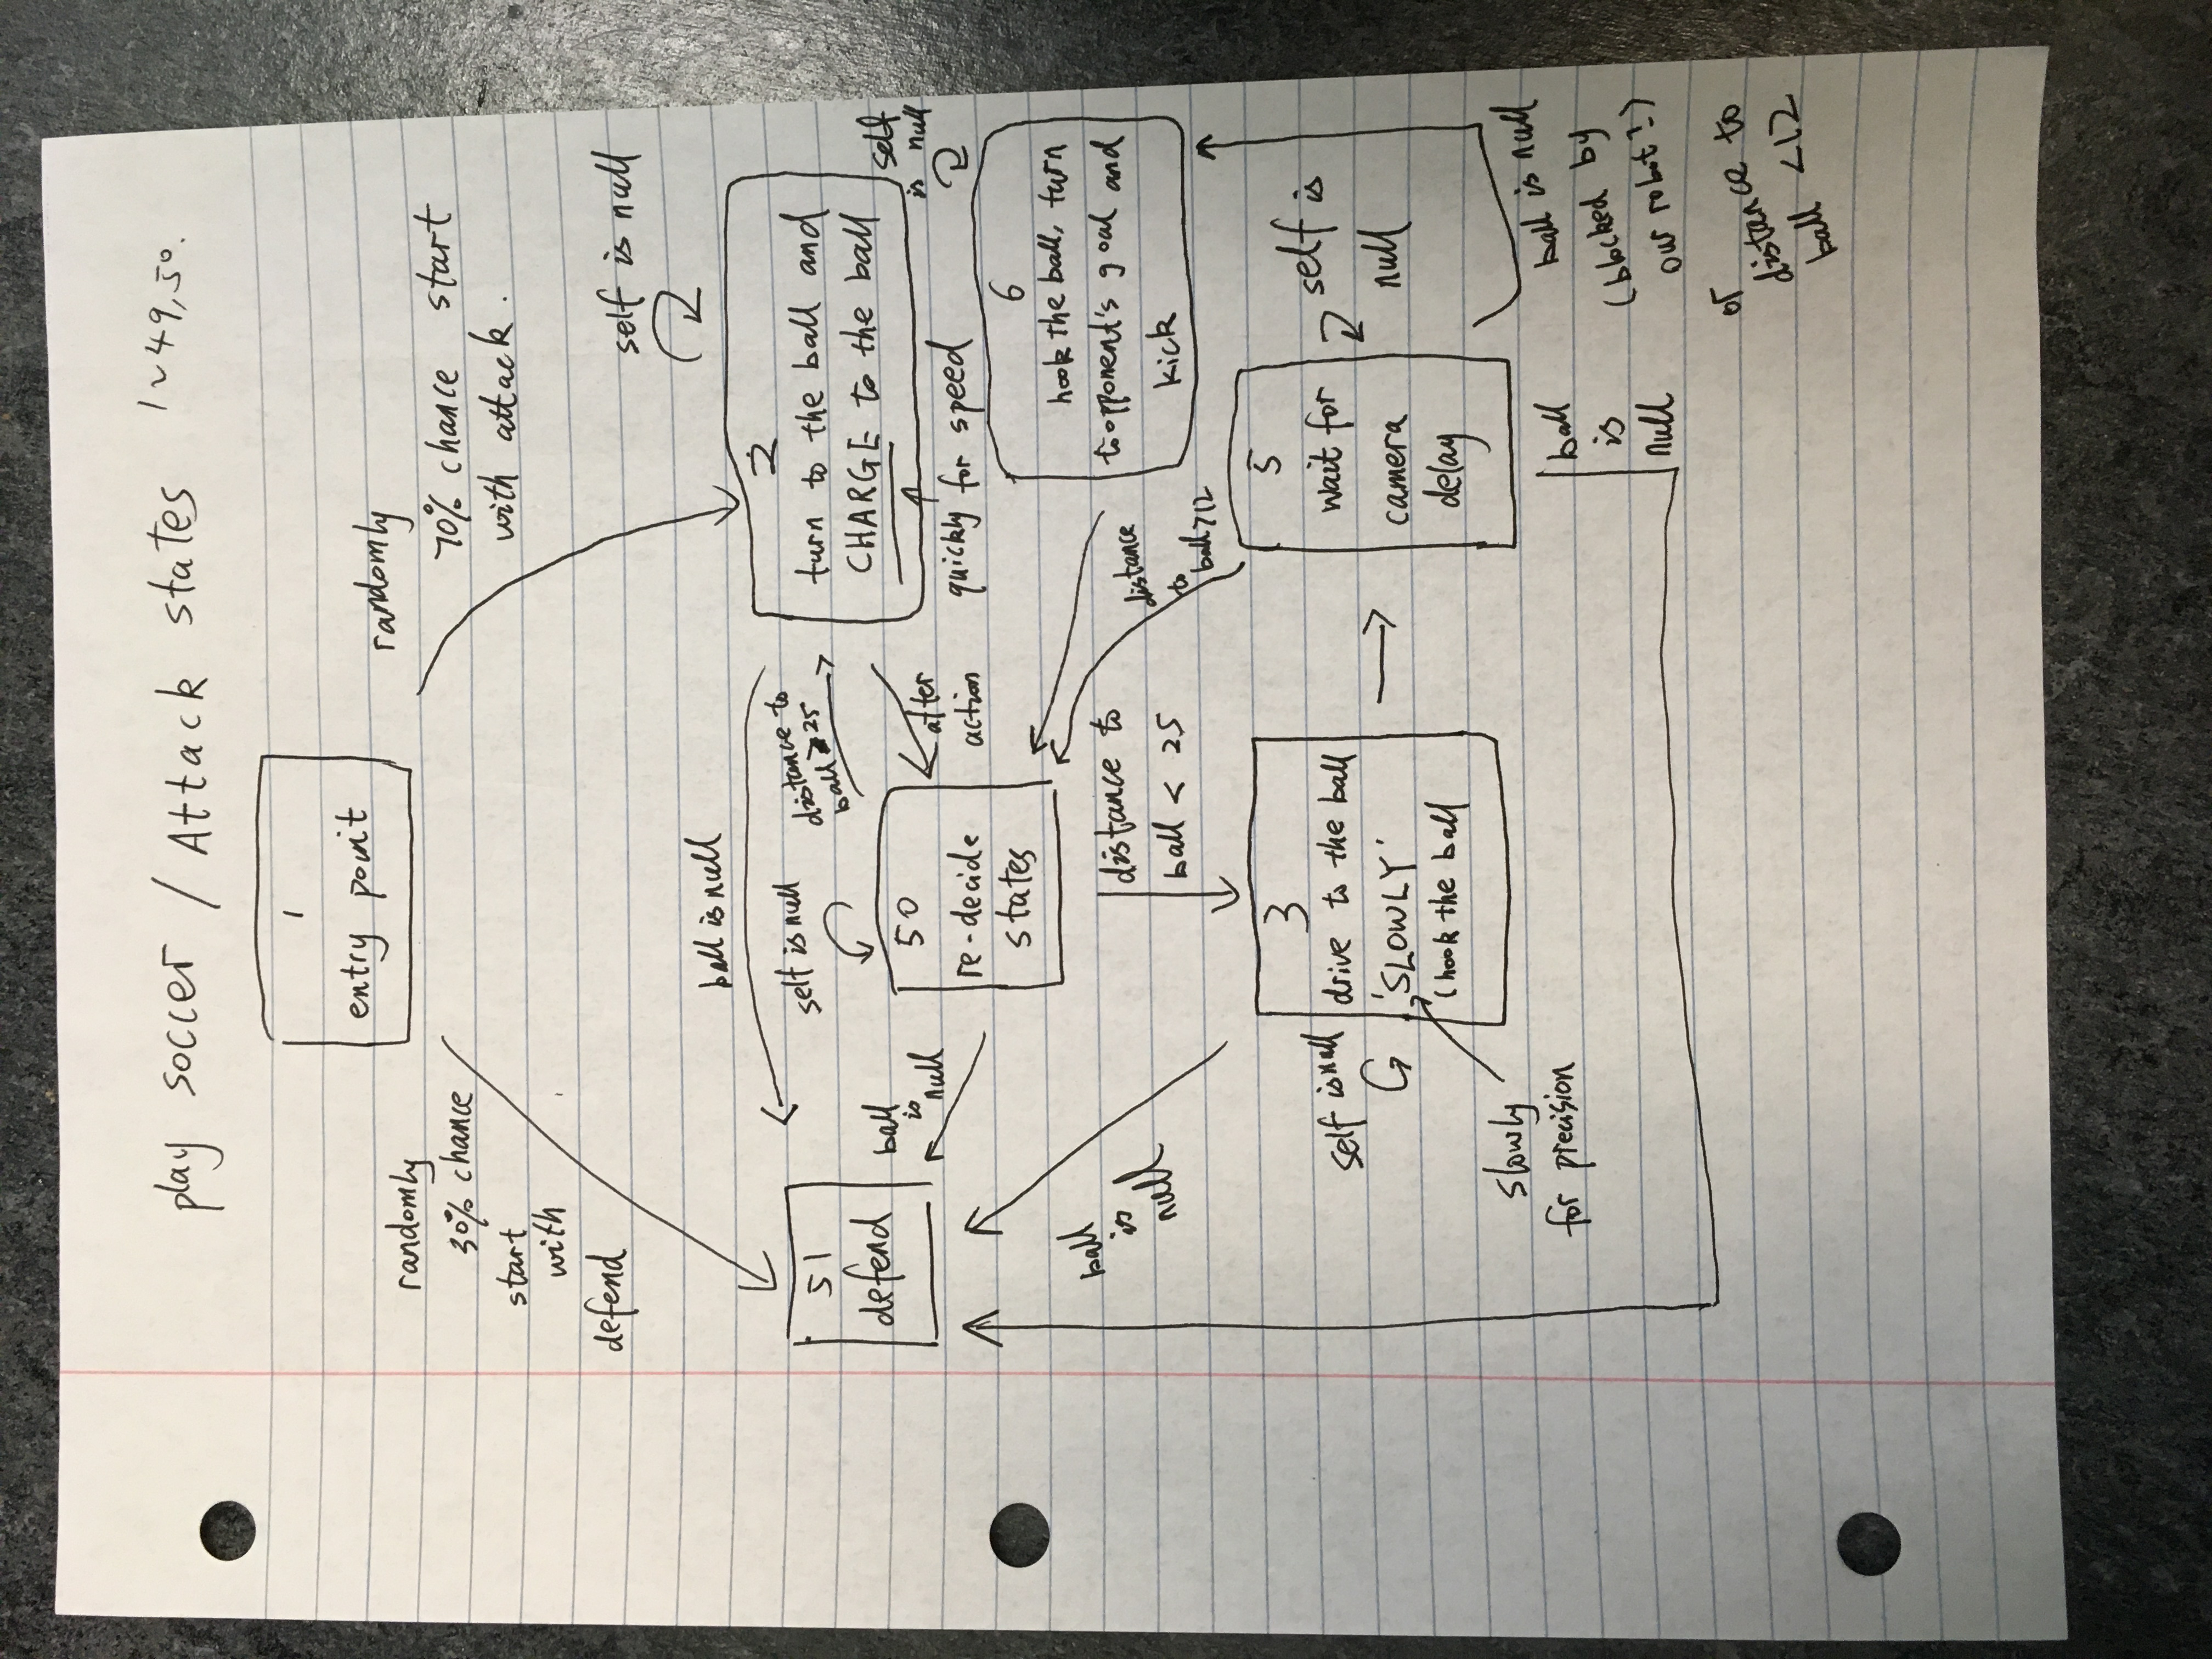 play soccer / Attack states 1~49,50.
1
entry point
randomly
30% chance
start
with
defend
randomly
70% chance start
with attack.
self is null
ball is null
self is null
distance to
ball ≥ 25
2
turn to the ball and
CHARGE to the ball
quickly for speed
51
defend
ball
is
null
50
re-decide
states
after
action
self
is null
6
hook the ball, turn
to opponent's goal and
kick
ball
is
null
distance to
ball < 25
distance
to
ball >12
3
drive to the ball
'SLOWLY'
(hook the ball
self is null
slowly
for precision
5
wait for
camera
delay
self is
null
ball
is
null
ball is null
(blocked by
our robot?)
or
distance to
ball <12